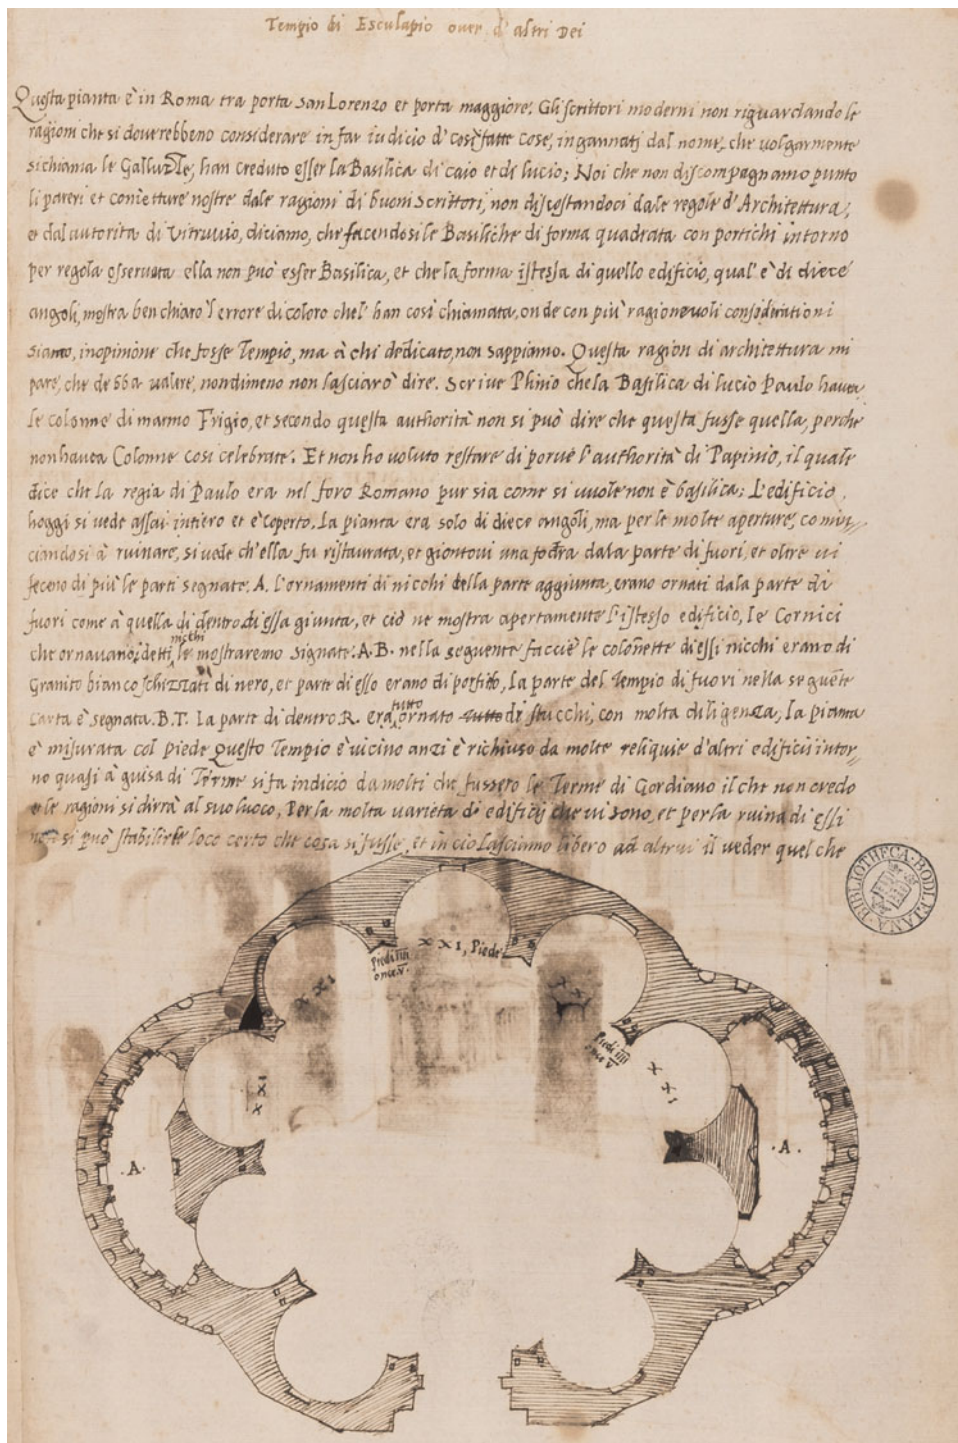 Tempio di Esculapio over d'altri Dei
Questa pianta è in Roma tra porta San Lorenzo et porta maggiore. Gli scrittori moderni non riguardando le
ragioni che si doverebbeno considerare in far iudicio d' così fatte cose, ingannati dal nome, che volgarmente
si chiama le Galluzze, han creduto esser la Basilica di caio et di lucio; Noi che non discompagnamo punto
li pareri et conietture nostre dale ragioni di buoni Scrittori, non discostandoci dale regole d'Architettura,
et dal autorita di Vitruvio, diciamo, che facendosi le Basiliche di forma quadrata con portichi intorno
per regola osservata ella non può esser Basilica, et che la forma istessa di quello edificio, qual' è di diece
angoli, mostra ben chiaro l'errore di coloro chel' han così chiamata, onde con più ragionevoli considerationi
siamo, in opinione che fosse Tempio, ma à chi dedicato, non sappiamo. Questa ragion di architettura mi
pare, che debba valere, nondimeno non lasciarò dire. Scrive Plinio che la Basilica di lucio Paulo havea
le colonne di marmo Frigio, et secondo questa authorità non si può dire che questa fusse quella, perche
non havea Colonne così celebrate. Et non ho voluto restare di porve l'authorità di Papinio, il quale
dice che la regia di Paulo era nel foro Romano pur sia come si vuole non è basilica; L'edificio
hoggi si vede assai intiero et è coperto. La pianta era solo di diece angoli, ma per le molte aperture, comin//
ciandosi à ruinare, si vede ch'ella fu ristaurata, et giontovi una fodra dala parte di fuori, et oltre vi
feceno di più le parti segnate. A. l'ornamenti di nicchi della parte aggiunta, erano ornati dala parte di
fuori come à quella di dentro di essa giunta, et ciò ne mostra apertamente l'istesso edificio, le Cornici
che ornavano i detti nicchi le mostraremo signate. A. B. nella seguente facciè le colonette di essi nicchi erano di
Granito bianco schizzati di nero, et parte di esso erano di porfido, la parte del Tempio di fuori nella seguēte
carta è segnata. B. T. la parte di dentro. R. era tutto ornato tutto di stucchi, con molta diligenza; la pianta
è misurata col piede Questo Tempio è vicino anzi è richiuso da molte reliquie d'altri edificii intor//
no quasi à guisa di Terme si fa indicio da molti che fussero le Terme di Gordiano il che non credo
e le ragioni si dirrà al suo luoco, Per la molta varietà di edificij che vi sono, et per la ruina di essi
non si può stabilire loco certo che cosa si fusse, et in ciò lasciamo libero ad altrui il veder quel che
BIBLIOTHECA·BODLEIANA·
XXI, Piede
Piedi iiii
once. V.
XXI
XXI
Piedi iiii
once V
XXI
XXI
·A·
·A·